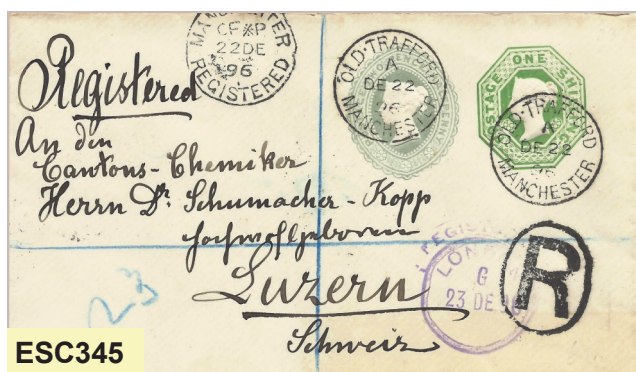 MANCHESTER
CF※P
22DE
96
REGISTERED
OLD·TRAFFORD
A
DE 22
96
MANCHESTER
POSTAGE ONE SHILLING
OLD·TRAFFORD
A
DE 22
96
MANCHESTER
Registered
An den
Cantons-Chemiker
Herrn Dr. Schumacher-Kopp
Hochwohlgeboren
Luzern
Schweiz
REGISTERED
LONDON
G
23 DE 96
R
23
ESC345